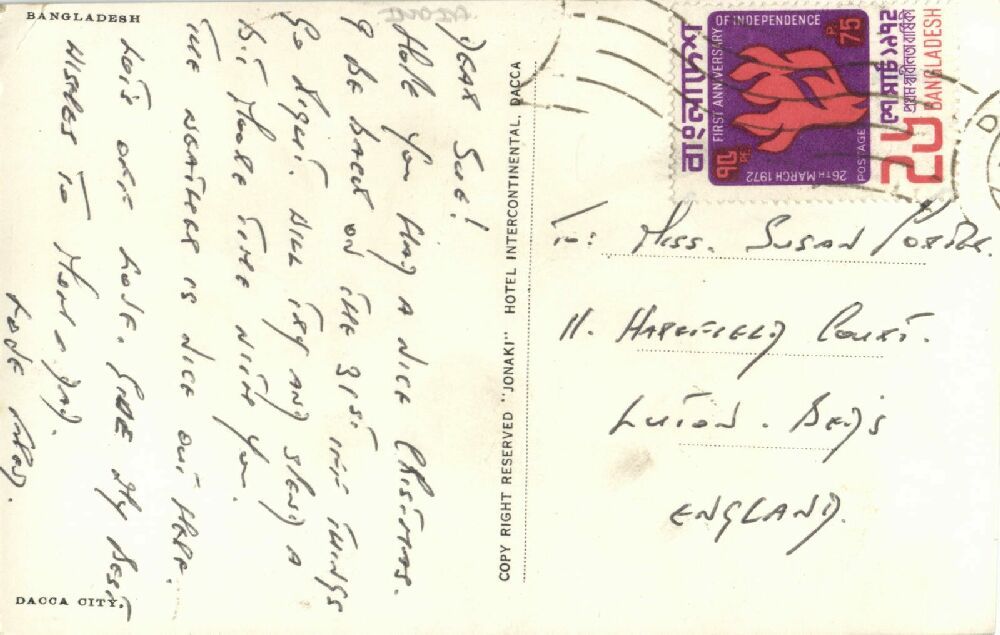 BANGLADESH
DEAR SUE!
HOPE YOU HAD A NICE CHRISTMAS.
I BE BACK ON THE 31ST IFF THINGS
GO RIGHT. WILL TRY AND SPEND A
BIT MORE TIME WITH YOU.
THE WEATHER IS NICE OUT HERE.
LOTS OFF LOVE. GIVE MY BEST
WISHES TO MUM & DAD.
LOVE
DACCA CITY.
COPY RIGHT RESERVED "JONAKI" HOTEL INTERCONTINENTAL, DACCA
বাংলাদেশ
FIRST ANNIVERSARY OF INDEPENDENCE
75
P.
৭৫
PE
26TH MARCH 1972
POSTAGE
প্রথম স্বাধীনতা বার্ষিকী
BANGLADESH
TO: MISS. SUSAN PORTER.
11. HAREFIELD COURT.
LUTON. BEDS
ENGLAND.